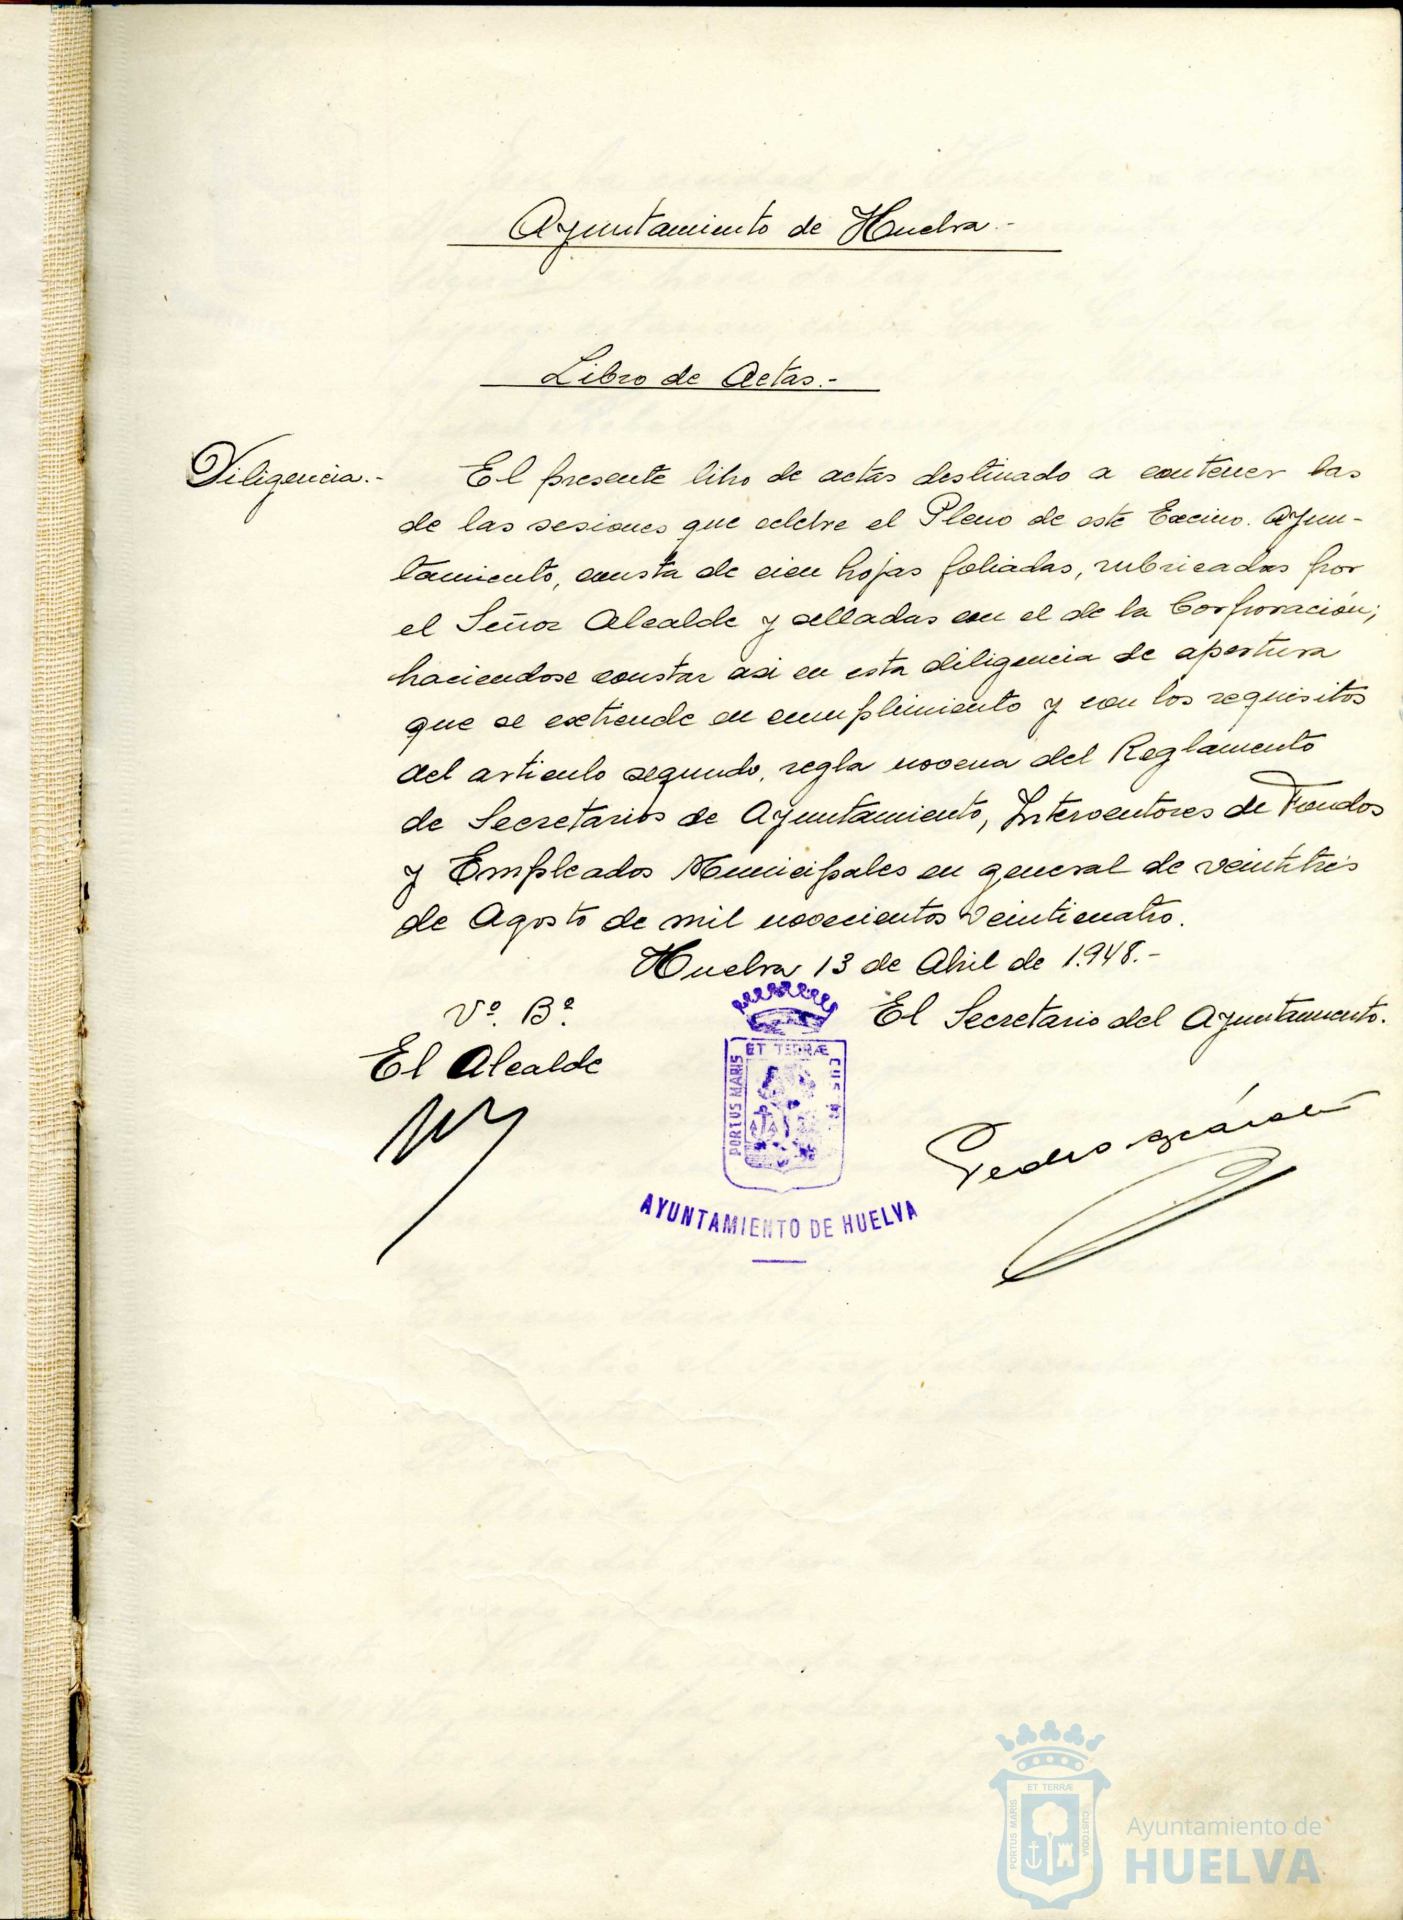 Ayuntamiento de Huelva.-
Libro de Actas.-
Diligencia.-
El presente libro de actas destinado a contener las
de las sesiones que celebre el Pleno de este Excmo. Ayun-
tamiento, consta de cien hojas foliadas, rubricadas por
el Señor Alcalde y selladas con el de la Corporación;
haciendose constar asi en esta diligencia de apertura
que se extiende en cumplimiento y con los requisitos
del articulo segundo, regla novena del Reglamento
de Secretarios de Ayuntamiento, Interventores de Fondos
y Empleados Municipales en general de veintitrés
de Agosto de mil novecientos veinticuatro.
Huelva 13 de Abril de 1.948.-
Vº. Bº.
El Alcalde
El Secretario del Ayuntamiento.
PORTUS MARIS
ET TERRÆ
AYUNTAMIENTO DE HUELVA
Pedro
PORTUS MARIS
ET TERRÆ
CUSTODIA
Ayuntamiento de
HUELVA